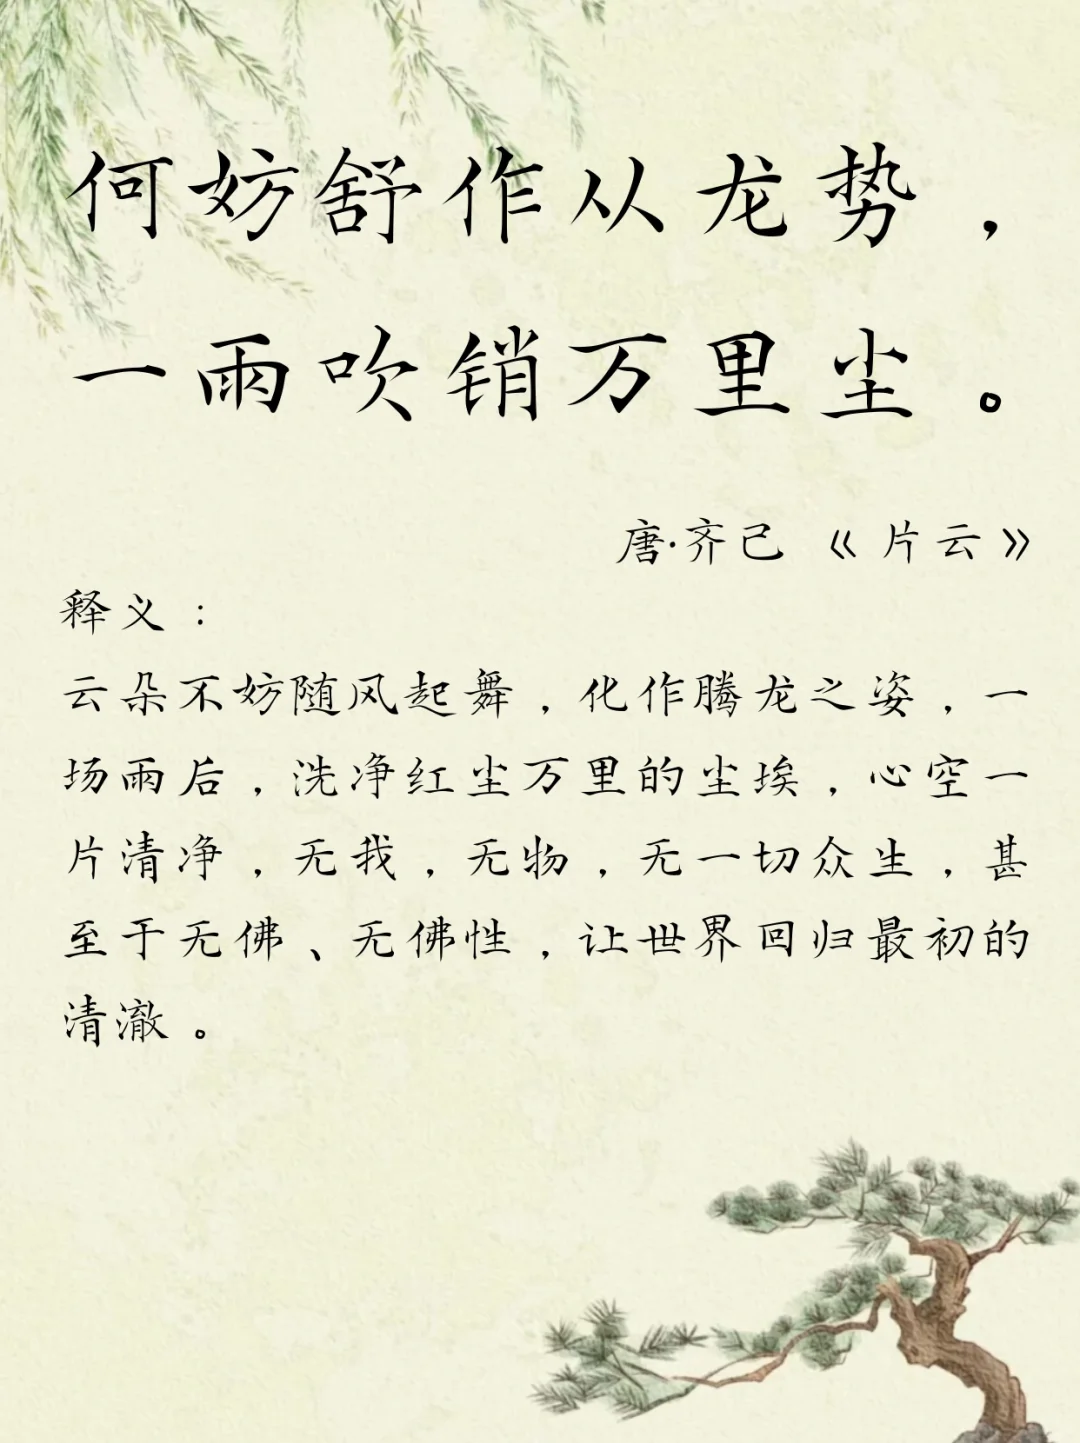 何妨舒作从龙势，
一雨吹销万里尘。
唐·齐己《片云》
释义：
云朵不妨随风起舞，化作腾龙之姿，一
场雨后，洗净红尘万里的尘埃，心空一
片清净，无我，无物，无一切众生，甚
至于无佛、无佛性，让世界回归最初的
清澈。